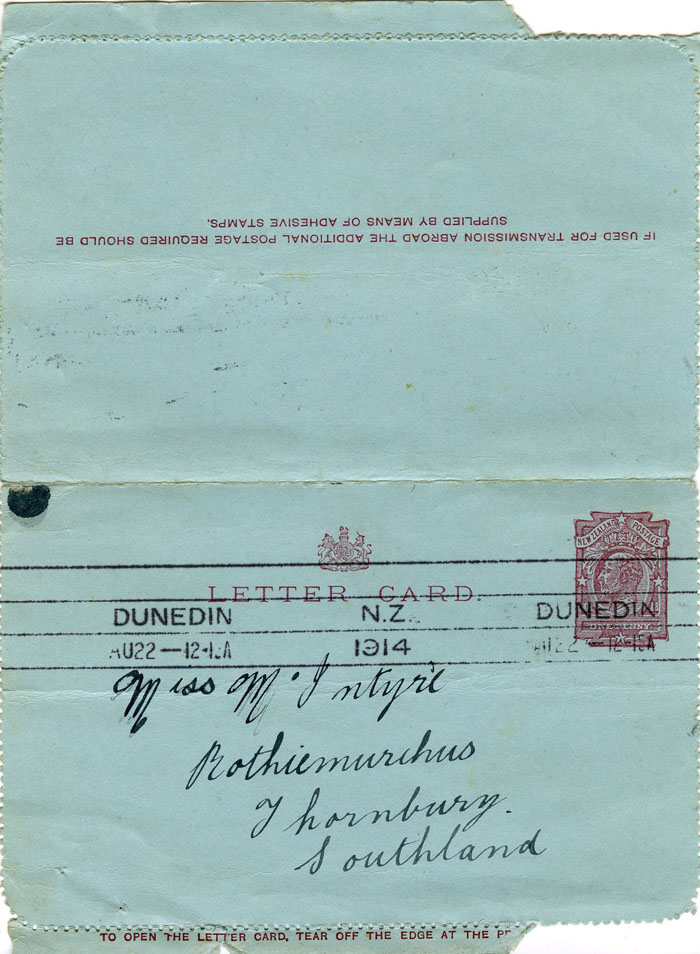 IF USED FOR TRANSMISSION ABROAD THE ADDITIONAL POSTAGE REQUIRED SHOULD BE
SUPPLIED BY MEANS OF ADHESIVE STAMPS.
NEW ZEALAND POSTAGE
ONE PENNY
LETTER CARD.
DUNEDIN N.Z. DUNEDIN
AU22—12-15A 1914 AU22—12-15A
Miss McIntyre
Rothiemurchus
Thornbury.
Southland
TO OPEN THE LETTER CARD, TEAR OFF THE EDGE AT THE